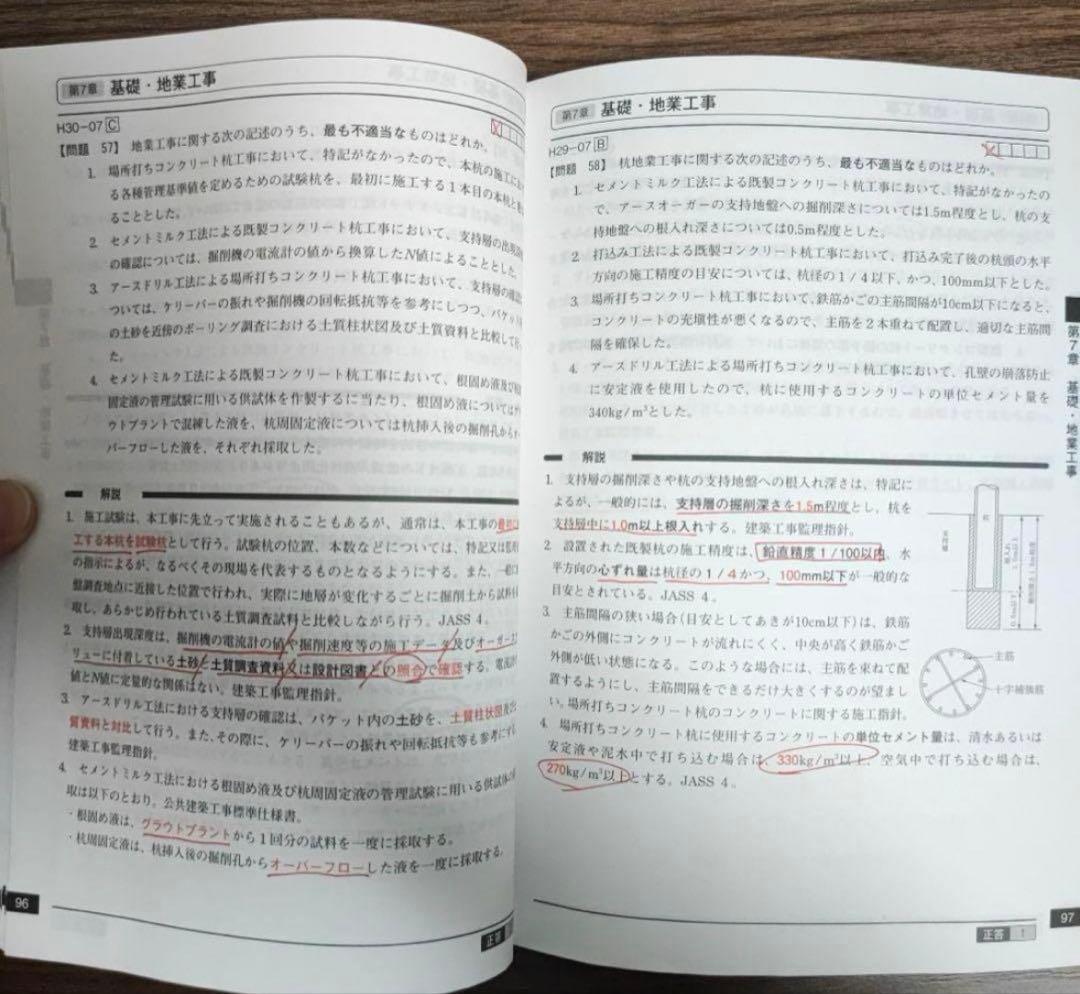 第7章 基礎・地業工事
H30-07 C
【問題 57】 地業工事に関する次の記述のうち、最も不適当なものはどれか。
1. 場所打ちコンクリート杭工事において、特記がなかったので、本杭の施工にお
る各種管理基準値を定めるための試験杭を、最初に施工する1本目の本杭と
ることとした。
2. セメントミルク工法による既製コンクリート杭工事において、支持層の出現深
の確認については、掘削機の電流計の値から換算したN値によることとした。
3. アースドリル工法による場所打ちコンクリート杭工事において、支持層の確認
ついては、ケリーバーの振れや掘削機の回転抵抗等を参考にしつつ、バケット
の土砂を近傍のボーリング調査における土質柱状図及び土質資料と比較して行
た。
4. セメントミルク工法による既製コンクリート杭工事において、根固め液及び杭
固定液の管理試験に用いる供試体を作製するに当たり、根固め液についてはグ
ウトプラントで混練した液を、杭周固定液については杭挿入後の掘削孔からオ
バーフローした液を、それぞれ採取した。
解説
1. 施工試験は、本工事に先立って実施されることもあるが、通常は、本工事の最初に
工する本杭を試験杭として行う。試験杭の位置、本数などについては、特記又は監理
の指示によるが、なるべくその現場を代表するものとなるようにする。また、一般に
盤調査地点に近接した位置で行われ、実際に地層が変化するごとに掘削土から試料を
取し、あらかじめ行われている土質調査試料と比較しながら行う。JASS 4。
2. 支持層出現深度は、掘削機の電流計の値や掘削速度等の施工データ及びオーガース
リューに付着している土砂と土質調査資料又は設計図書との照合で確認する。電流計
値とN値に定量的な関係はない。建築工事監理指針。
3. アースドリル工法における支持層の確認は、バケット内の土砂を、土質柱状図及び土
質資料と対比して行う。また、その際に、ケリーバーの振れや回転抵抗等も参考にす
建築工事監理指針。
4. セメントミルク工法における根固め液及び杭周固定液の管理試験に用いる供試体の
取は以下のとおり。公共建築工事標準仕様書。
・根固め液は、グラウトプラントから1回分の試料を一度に採取する。
・杭周固定液は、杭挿入後の掘削孔からオーバーフローした液を一度に採取する。
96
正答
第7章 基礎・地業工事
H29-07 B
【問題 58】 杭地業工事に関する次の記述のうち、最も不適当なものはどれか。
1. セメントミルク工法による既製コンクリート杭工事において、特記がなかったの
で、アースオーガーの支持地盤への掘削深さについては1.5m程度とし、杭の支
持地盤への根入れ深さについては0.5m程度とした。
2. 打込み工法による既製コンクリート杭工事において、打込み完了後の杭頭の水平
方向の施工精度の目安については、杭径の1/4以下、かつ、100mm以下とした。
3. 場所打ちコンクリート杭工事において、鉄筋かごの主筋間隔が10cm以下になると、
コンクリートの充塡性が悪くなるので、主筋を2本重ねて配置し、適切な主筋間
隔を確保した。
4. アースドリル工法による場所打ちコンクリート杭工事において、孔壁の崩落防止
に安定液を使用したので、杭に使用するコンクリートの単位セメント量を
340kg/m³とした。
解説
1. 支持層の掘削深さや杭の支持地盤への根入れ深さは、特記に
よるが、一般的には、支持層の掘削深さを1.5m程度とし、杭を
支持層中に1.0m以上根入れする。建築工事監理指針。
2. 設置された既製杭の施工精度は、鉛直精度1/100以内、水
平方向の心ずれ量は杭径の1/4かつ、100mm以下が一般的な
目安とされている。JASS 4。
3. 主筋間隔の狭い場合(目安としてあきが10cm以下)は、鉄筋
かごの外側にコンクリートが流れにくく、中央が高く鉄筋かご
外側が低い状態になる。このような場合には、主筋を束ねて配
置するようにし、主筋間隔をできるだけ大きくするのが望まし
い。場所打ちコンクリート杭のコンクリートに関する施工指針。
4. 場所打ちコンクリート杭に使用するコンクリートの単位セメント量は、清水あるいは
安定液や泥水中で打ち込む場合は、330kg/m³以上、空気中で打ち込む場合は、
270kg/m³以上とする。JASS 4。
杭
支持層
主筋
十字補強筋
第7章 基礎・地業工事
正答 1
97